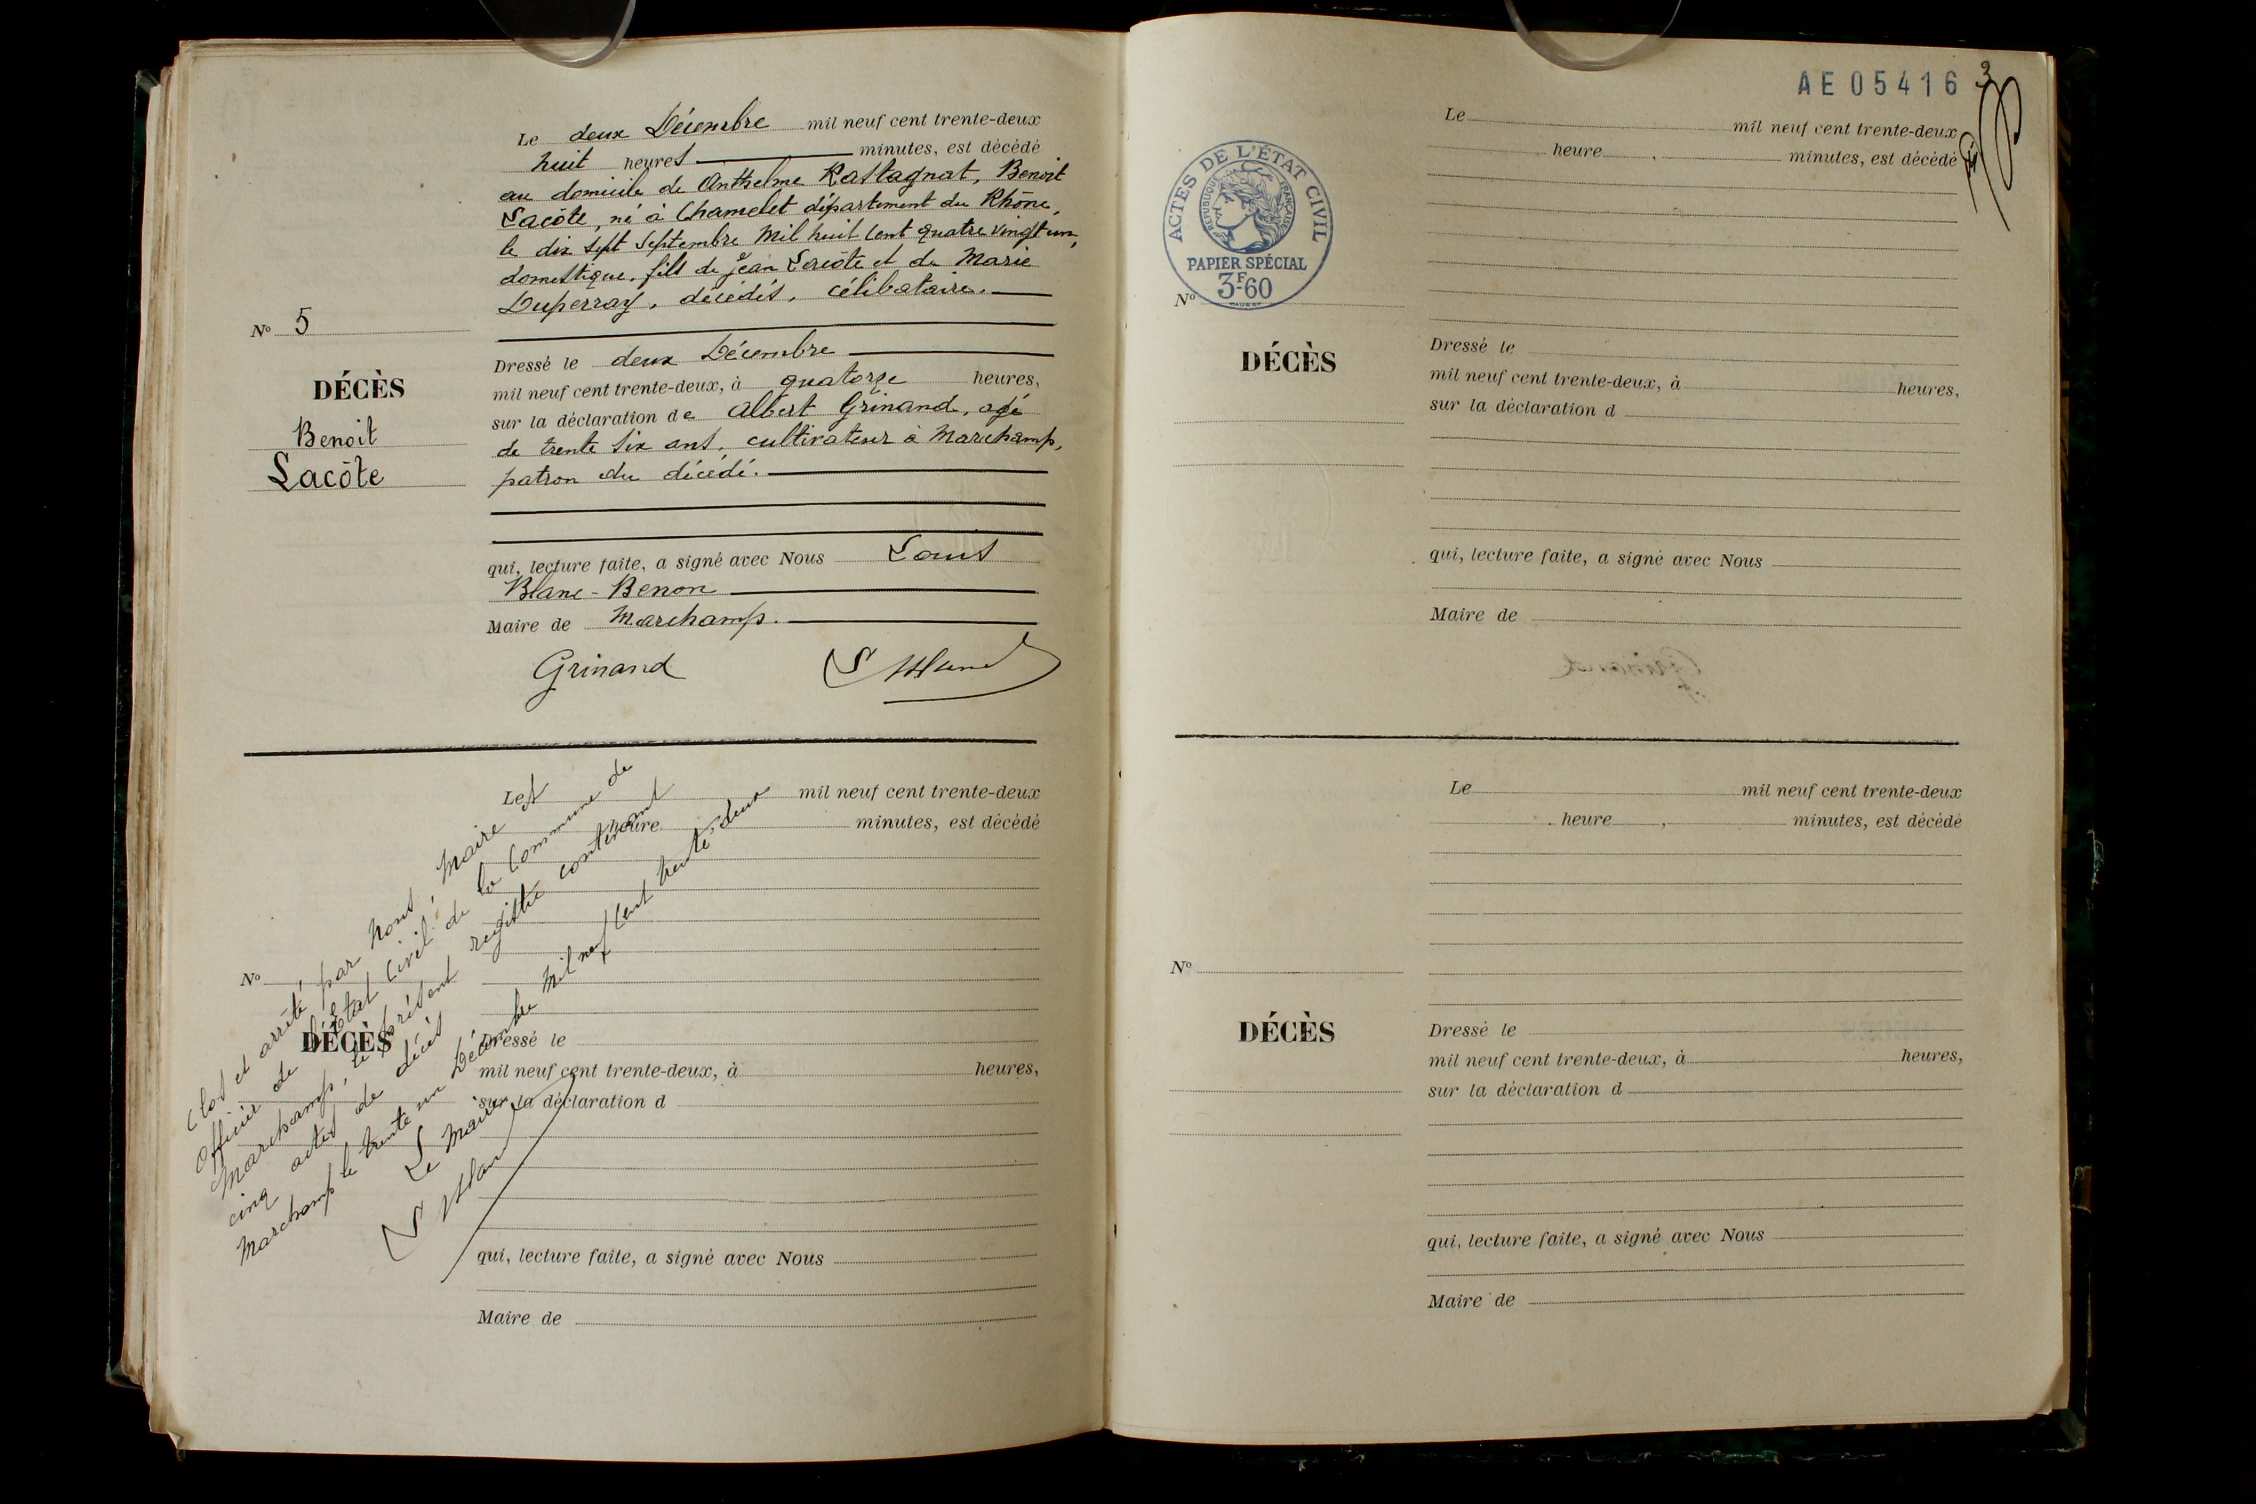 Le deux Décembre mil neuf cent trente-deux
huit heures minutes, est décédé
au domicile de Anthelme Rastagnat, Benoit
Lacôte, né à Chamelet département du Rhône,
le dix sept Septembre Mil huit Cent quatre vingt un,
domestique, fils de Jean Lacôte et de Marie
Duperray, décédés, célibataire.
Nº 5
DÉCÈS
Benoit
Lacôte
Dressé le deux Décembre
mil neuf cent trente-deux, à quatorze heures,
sur la déclaration de Albert Grinand, agé
de trente six ans, cultivateur à Marchamp,
patron du décédé.
qui, lecture faite, a signé avec Nous Louis
Blanc-Benon
Maire de Marchamp.
Grinand
Le mil neuf cent trente-deux
heure minutes, est décédé
Nº
DÉCÈS
Dressé le
mil neuf cent trente-deux, à heures,
sur la déclaration d
qui, lecture faite, a signé avec Nous
Maire de
Clos et arrêté par nous, Maire et
Officier de l'État Civil de la Commune de
Marchamp, le présent registre contenant
cinq actes de décès
Marchamp le trente un Décembre Mil neuf Cent trente-deux
Le Maire
AE 05416
3
Le mil neuf cent trente-deux
heure minutes, est décédé
ACTES DE L'ÉTAT CIVIL
RÉPUBLIQUE FRANÇAISE
PAPIER SPÉCIAL
3F60
Nº
DÉCÈS
Dressé le
mil neuf cent trente-deux, à heures,
sur la déclaration d
qui, lecture faite, a signé avec Nous
Maire de
Le mil neuf cent trente-deux
heure minutes, est décédé
Nº
DÉCÈS
Dressé le
mil neuf cent trente-deux, à heures,
sur la déclaration d
qui, lecture faite, a signé avec Nous
Maire de